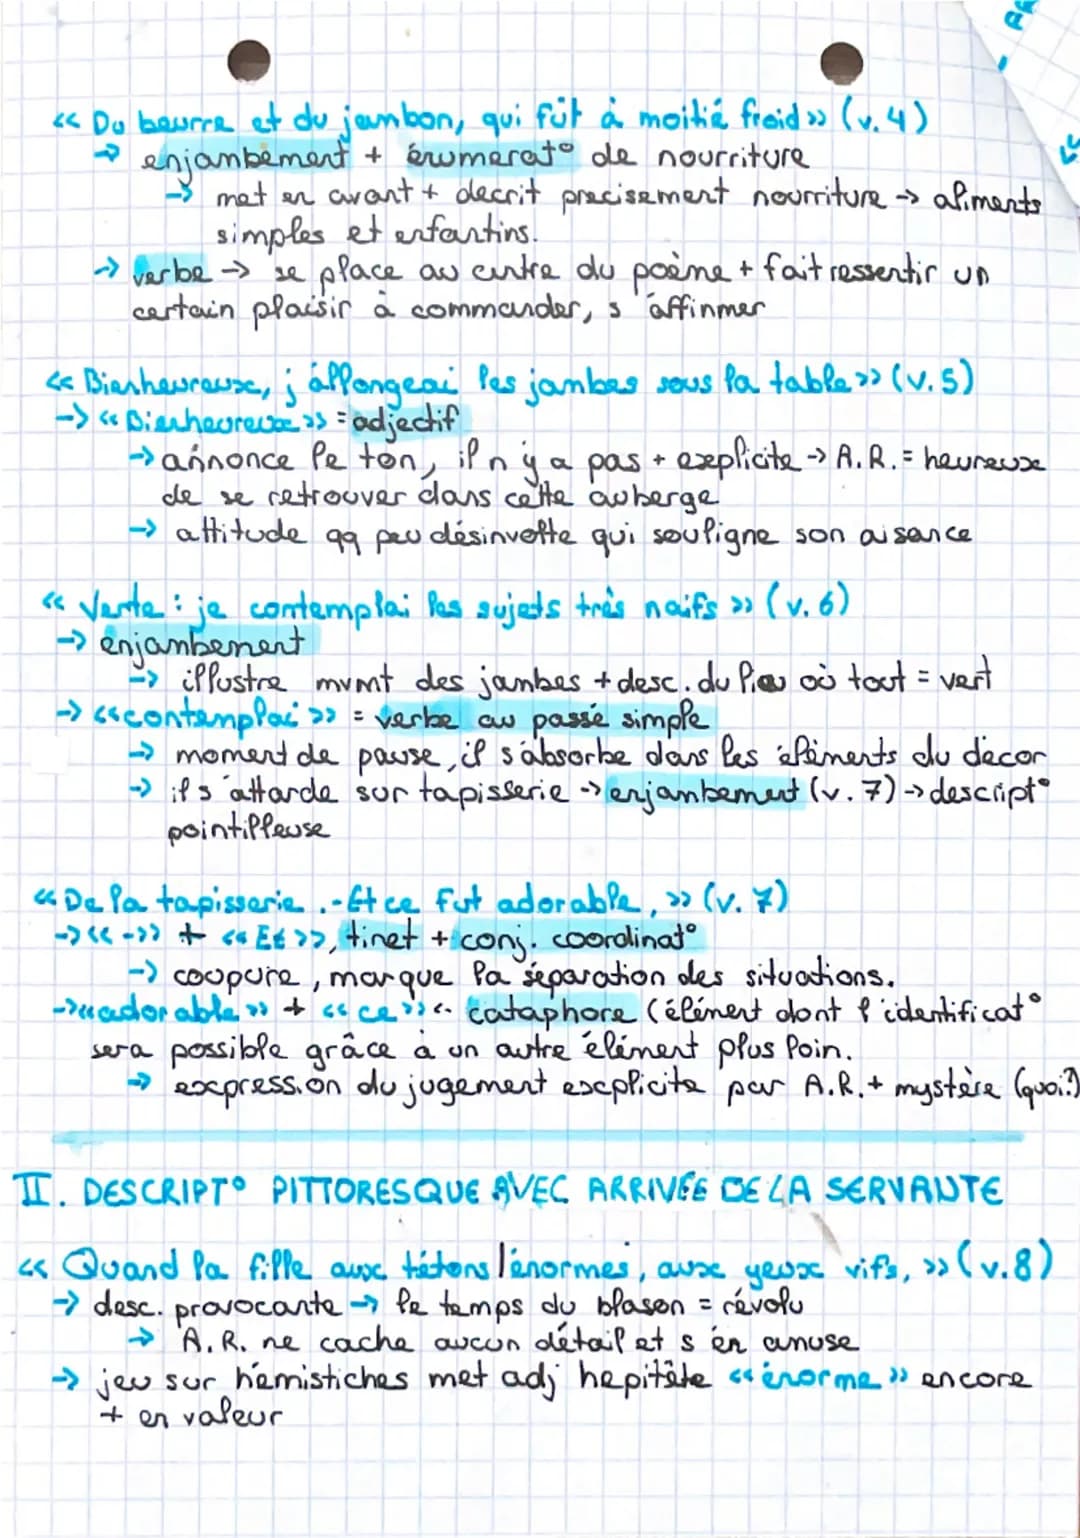 « Du beurre et du jambon, qui fût à moitié froid » (v.4)
→ enjambement + énumerat° de nourriture
→ met en avant + decrit precisement nourriture → aliments
simples et enfantins.
→ verbe → se place au centre du poème + fait ressentir un
certain plaisir à commander, s'affirmer
« Bienheureuse, j'allongeai les jambes sous la table » (v.5)
→ « Bienheureux » = adjectif
→ annonce le ton, il n'y a pas + explicite → A.R. = heureux
de se retrouver dans cette auberge
→ attitude qq peu désinvolte qui souligne son aisance
« Verte : je contemplai les sujets très naïfs » (v.6)
→ enjambement
→ illustre mvmt des jambes + desc. du lieu où tout = vert
→ « contemplai » = verbe au passé simple
→ moment de pause, il s'absorbe dans les éléments du décor
→ il s'attarde sur tapisserie → enjambement (v.7) → descript°
pointilleuse
« De la tapisserie .-Et ce fut adorable, » (v.7)
→ « - » + « Et », tiret + conj. coordinat°
→ coupure, marque la séparation des situations.
→ « adorable » + « ce » ← cataphore (élément dont l'identificat°
sera possible grâce à un autre élément plus loin.
→ expression du jugement explicite par A.R. + mystère (quoi?)
II. DESCRIPT° PITTORESQUE AVEC ARRIVÉE DE LA SERVANTE
« Quand la fille aux tétons/énormes, aux yeux vifs, » (v.8)
→ desc. provocante → le temps du blason = révolu
→ A.R. ne cache aucun détail et s'en amuse
→ jeu sur hémistiches met adj hepitète « énorme » encore
+ en valeur